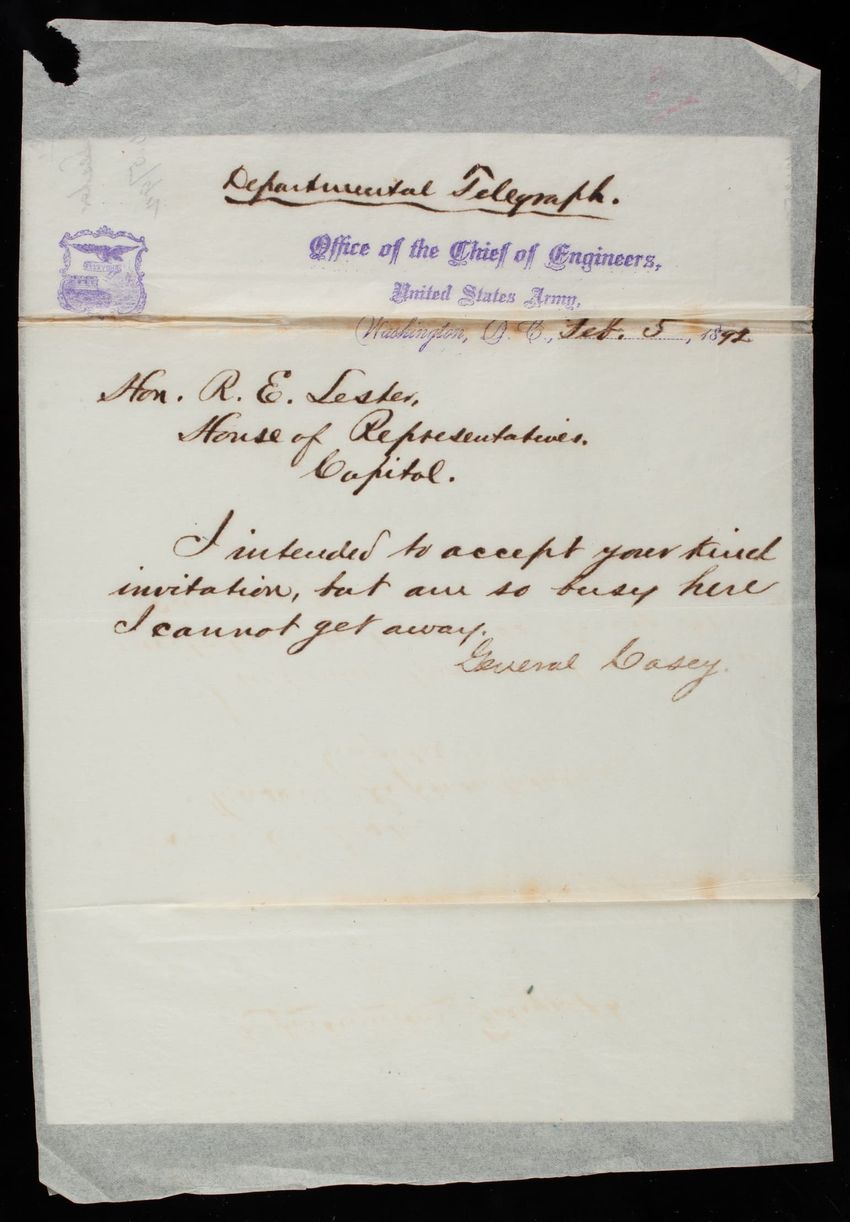 Departmental Telegraph.
Office of the Chief of Engineers,
United States Army,
Washington, D. C., Feb. 5, 1892
Hon. R. E. Lester,
House of Representatives.
Capitol.
I intended to accept your kind
invitation, but am so busy here
I cannot get away.
General Casey.